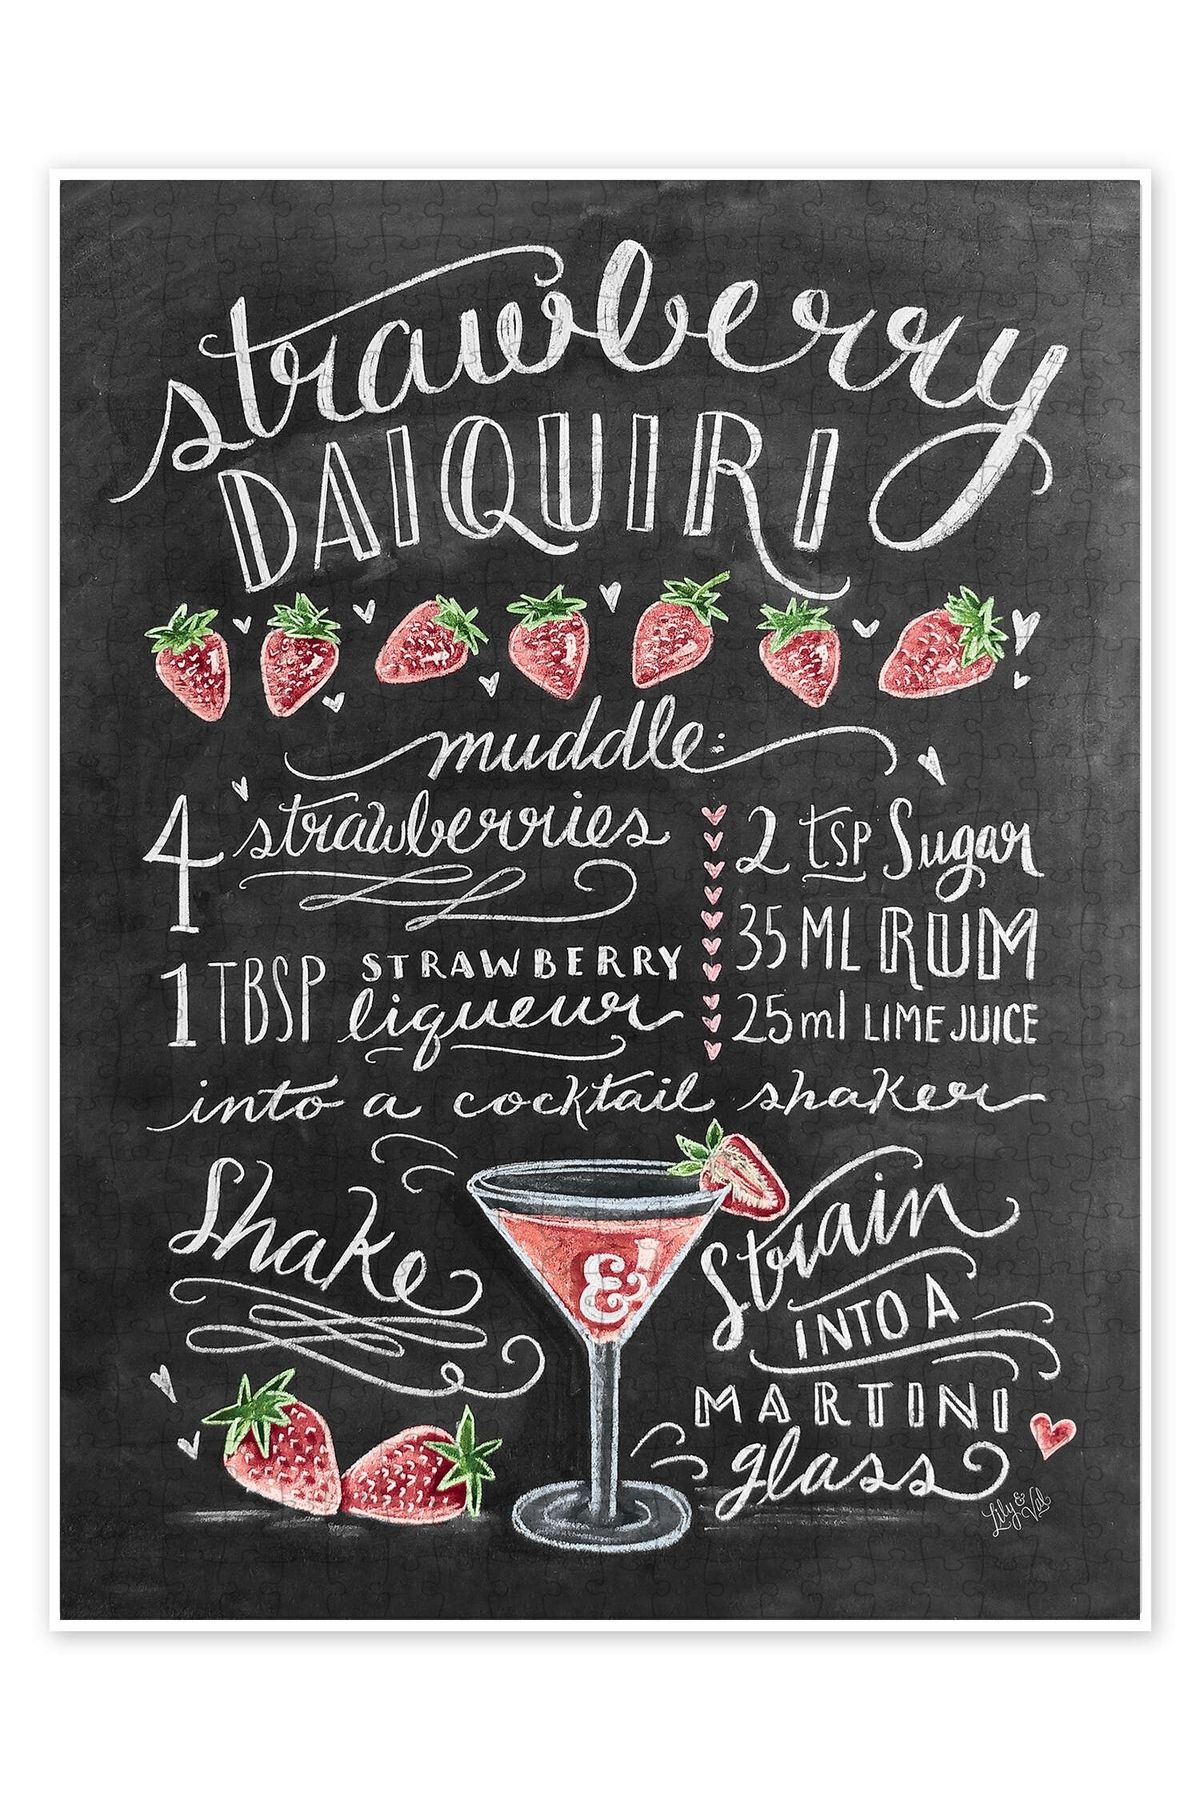 strawberry
DAIQUIRI
muddle:
4 strawberries
1 TBSP STRAWBERRY liqueur
2 tSP Sugar
35 ML RUM
25 ml LIME JUICE
into a cocktail shaker
Shake
&
Strain
INTO A
MARTINI
glass
Lily & Val